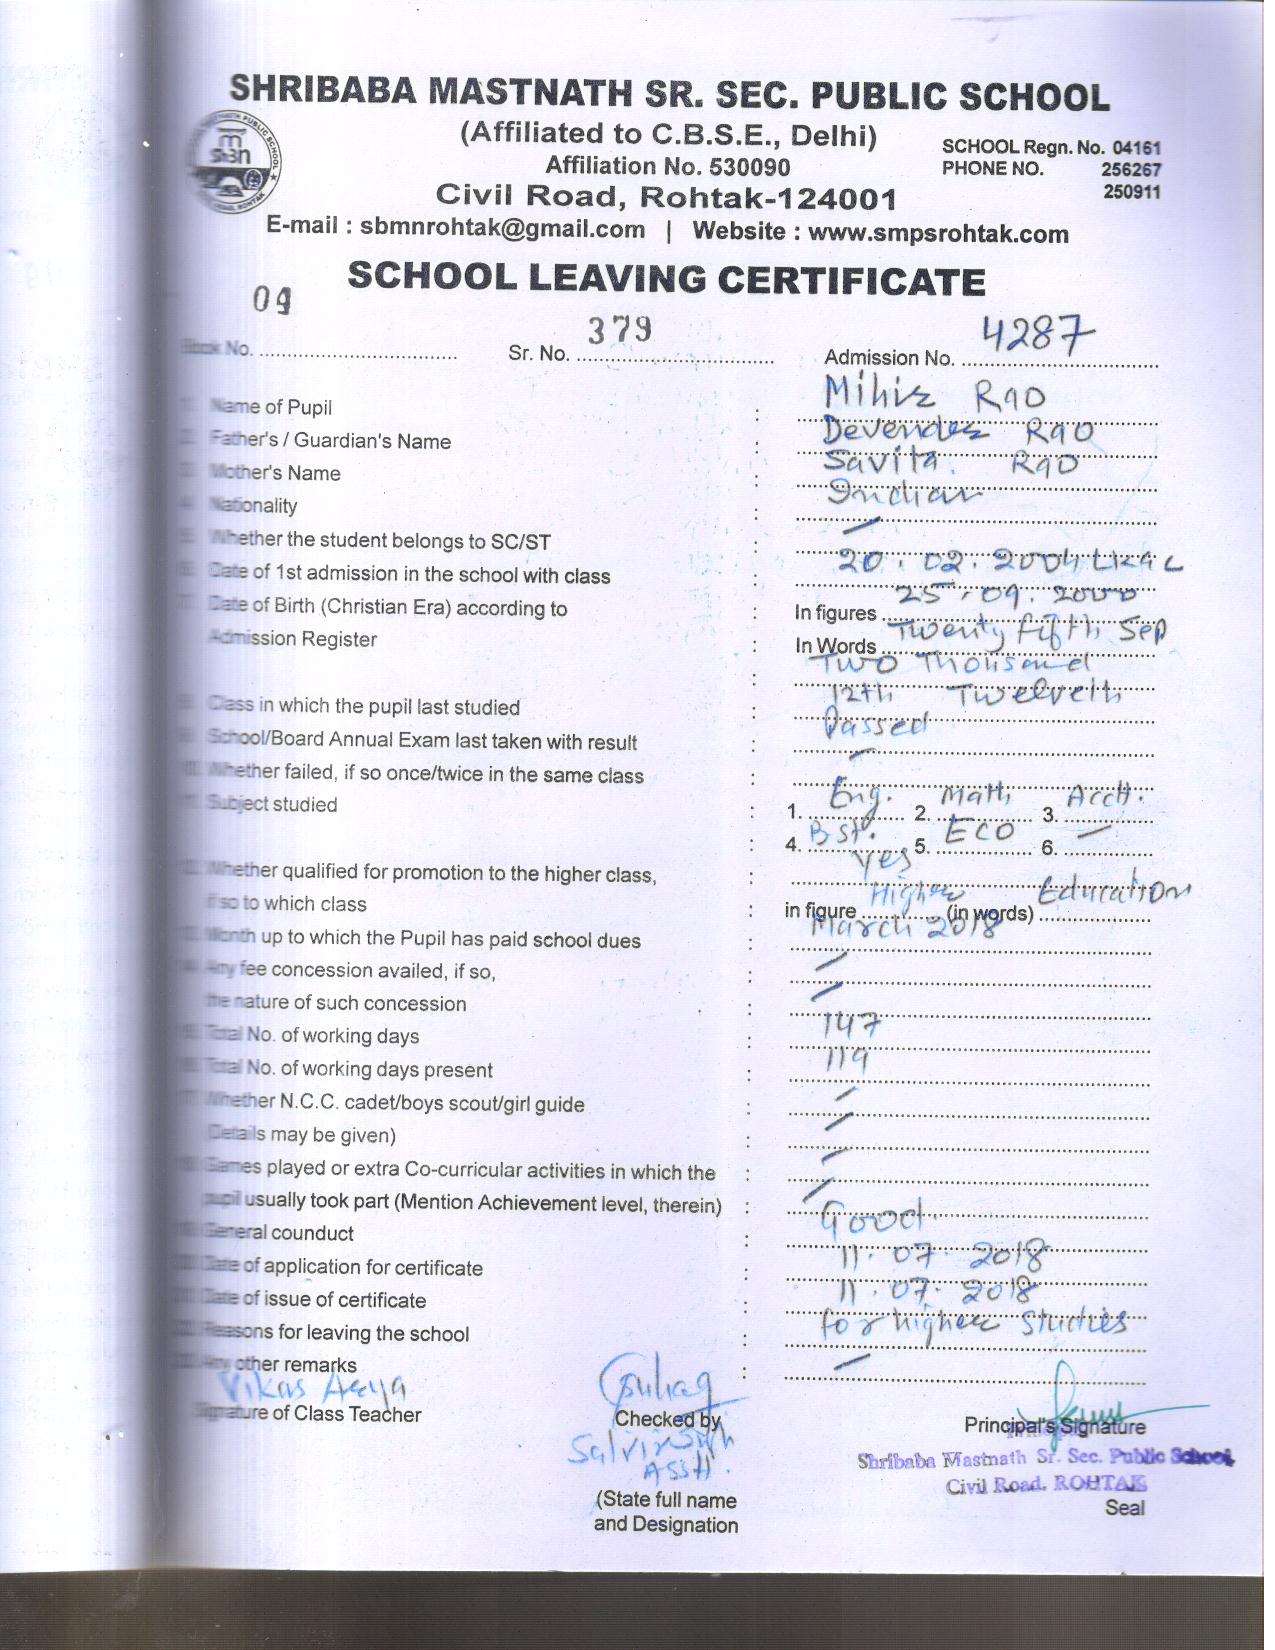 SHRIBABA MASTNATH SR. SEC. PUBLIC SCHOOL
(Affiliated to C.B.S.E., Delhi)
Affiliation No. 530090
SCHOOL Regn. No. 04161
PHONE NO. 256267
250911
Civil Road, Rohtak-124001
E-mail : sbmnrohtak@gmail.com | Website : www.smpsrohtak.com
SCHOOL LEAVING CERTIFICATE
Book No. 09 Sr. No. 379 Admission No. 4287
Name of Pupil : Mihir Rao
Father's / Guardian's Name : Devender Rao
Mother's Name : Savita Rao
Nationality : Indian
Whether the student belongs to SC/ST : —
Date of 1st admission in the school with class : 20.02.2004
Date of Birth (Christian Era) according to : In figures 25.09.2000
Admission Register : In Words Twenty fifth Sep
Two Thousand
Class in which the pupil last studied : 12th Twelveth
School/Board Annual Exam last taken with result : Passed
Whether failed, if so once/twice in the same class : —
Subject studied : 1. Eng. 2. Math 3. Acctt.
: 4. B St. 5. ECO 6. —
Whether qualified for promotion to the higher class, : yes
if so to which class : in figure Higher (in words) Education
Month up to which the Pupil has paid school dues : March 2018
Any fee concession availed, if so, : —
the nature of such concession : —
Total No. of working days : 147
Total No. of working days present : 119
Whether N.C.C. cadet/boys scout/girl guide : —
Details may be given) : —
Games played or extra Co-curricular activities in which the : —
pupil usually took part (Mention Achievement level, therein) : —
General counduct : Good.
Date of application for certificate : 11.07.2018
Date of issue of certificate : 11.07.2018
Reasons for leaving the school : for higher Studies
Any other remarks : —
Vikas Arya
Signature of Class Teacher Checked by Principal's Signature
Asstt.
Shribaba Mastnath Sr. Sec. Public School,
Civil Road, ROHTAK
(State full name Seal
and Designation